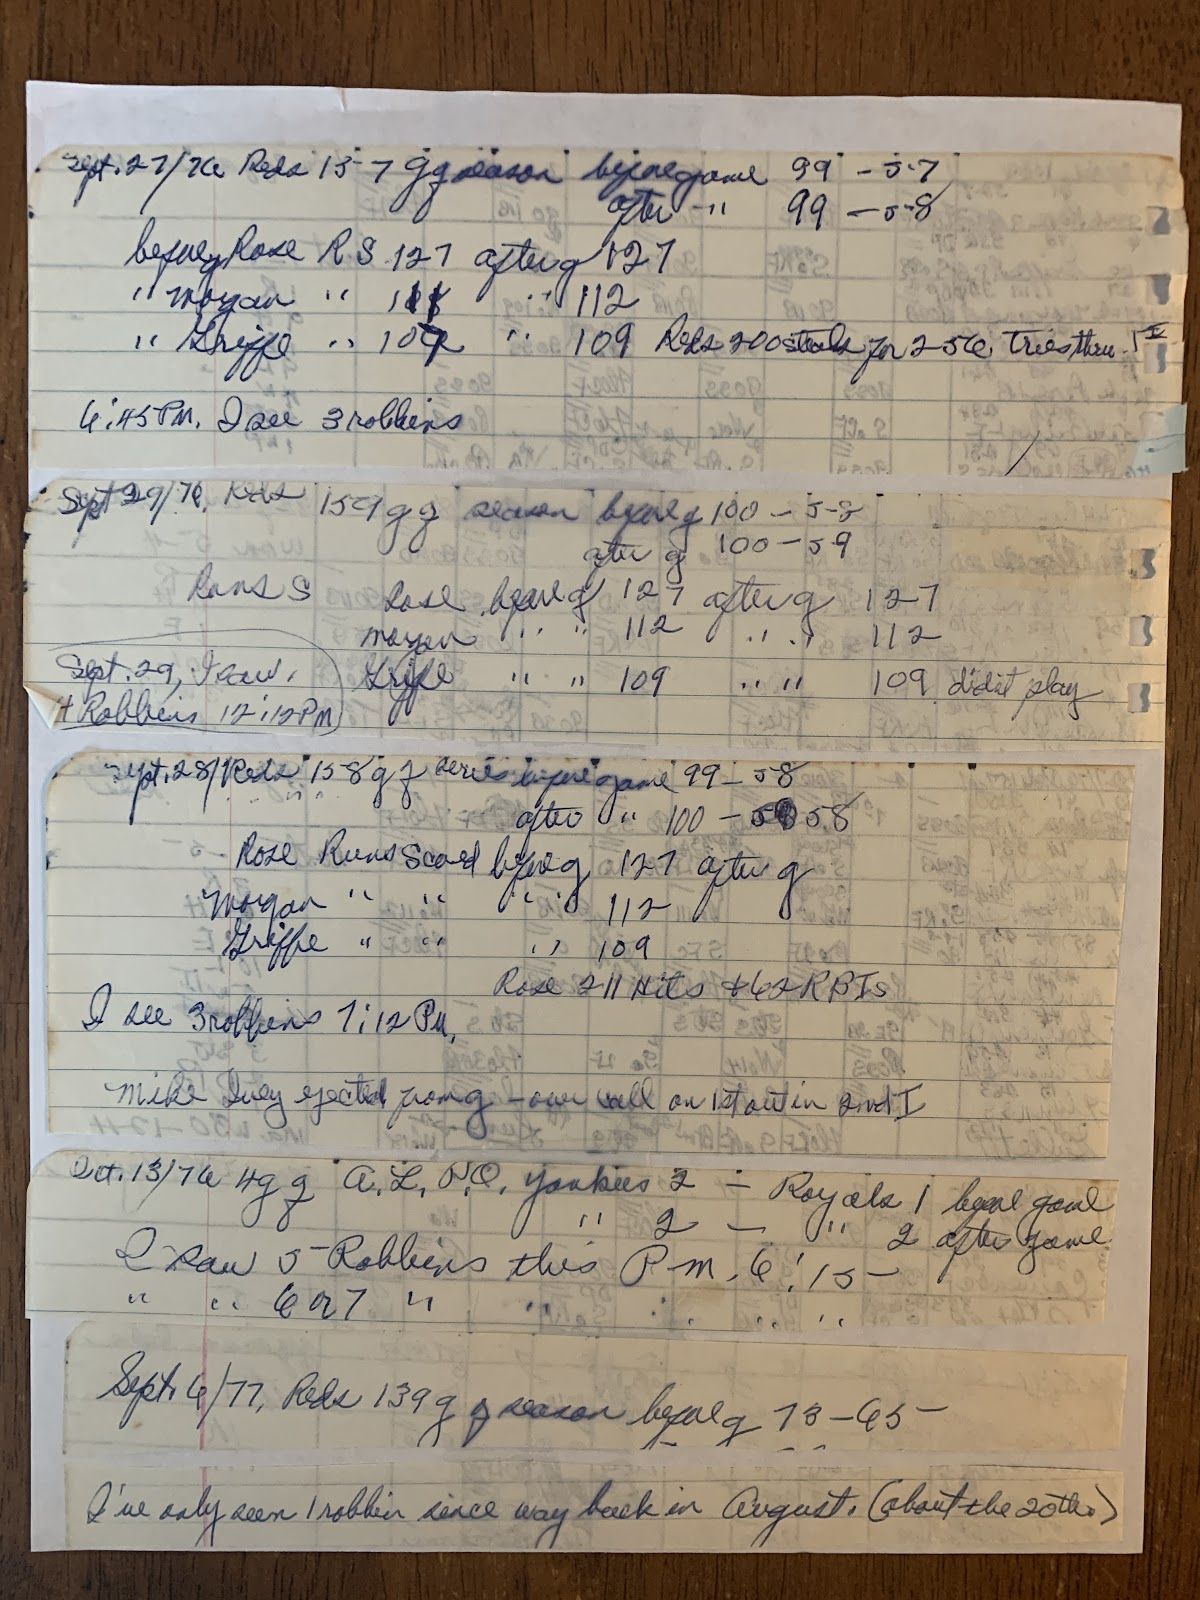 Sept. 27/76 Reds 157 g g season before game 99 - 57
after " 99 - 58
before g Rose R S 127 after g 127
" Morgan " 111 " 112
" Griffe " 109 " 109 Reds 200 steals for 256 tries thru
6:45 PM. I see 3 robbins
Sept 29/76. Reds 159 g g season before g 100 - 58
after g 100 - 59
Runs S Rose before g 127 after g 127
Morgan " " 112 " " 112
Griffe " " 109 " " 109 didst play
Sept. 29, I saw
4 Robbins 12:12 PM
Sept. 28/ Reds 158 g g series before game 99 - 58
after " 100 - 58
Rose Runs Scored before g 127 after g
Morgan " " " " 112
Griffe " " " 109
Rose 211 Hits + 62 RBIs
I see 3 robbins 7:12 PM.
Mike Ivey ejected from g - over call on 1st out in 2nd I
Oct. 13/76 4 g g A. L. P. O. Yankees 2 - Royals 1 before game
" 2 - " 2 after game
I saw 5 Robbins this P.m. 6:15 -
" " 6 or 7 " " " " "
Sept. 6/77, Reds 139 g g season before g 73 - 65
I've only seen 1 robbin since way back in August. (about the 20th.)